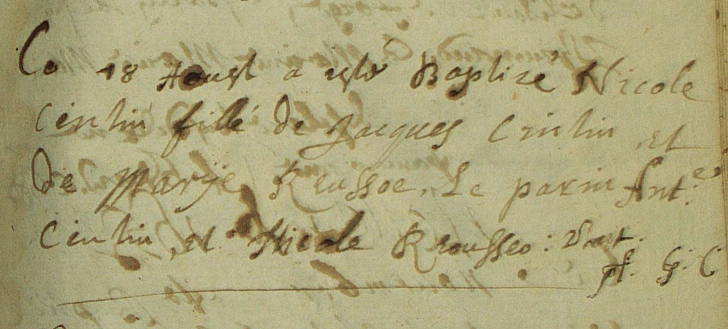 Ce 18 Aoust a esté Baptizé Nicole
Cintin fille de Jacques Cintin, et
De Marije Reussoe, Le parin Ant.
Cintin, et Nicole Rousseo: